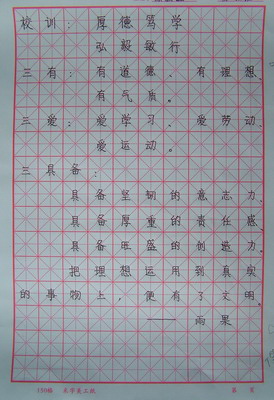 校训：厚德笃学
弘毅敏行
三有：有道德、有理想、
有气质。
三爱：爱学习、爱劳动、
爱运动。
三具备：
具备坚韧的意志力、
具备厚重的责任感、
具备旺盛的创造力。
把理想运用到真实
的事物上，便有了文明。
——雨果